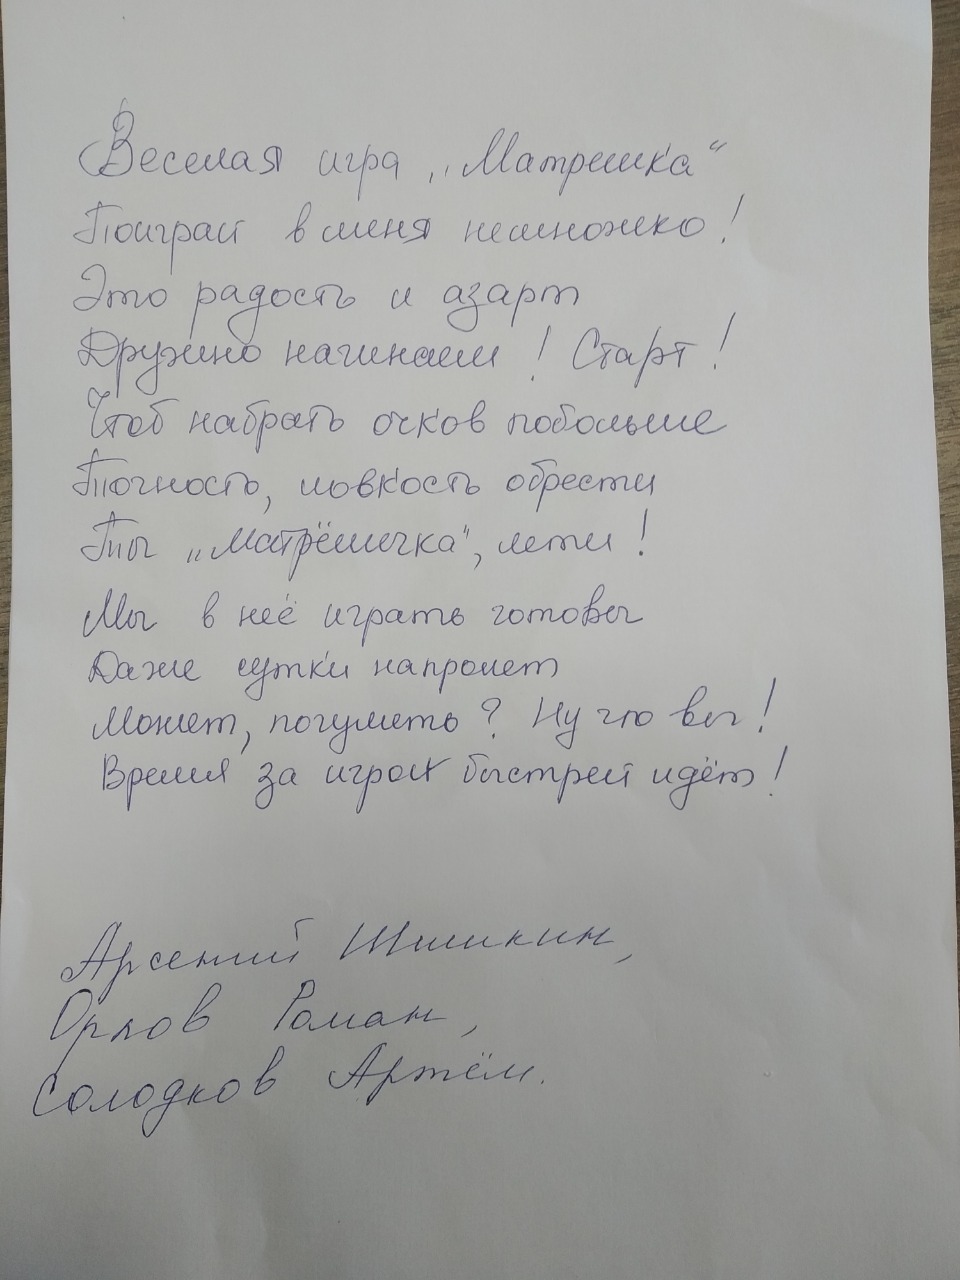 Веселая игра „Матрешка“
Поиграй в меня немножко!
Это радость и азарт
Дружно начинаем! Старт!
Чтоб набрать очков побольше
Точность, ловкость обрести
Ты „Матрёшечка“, лети!
Мы в неё играть готовы
Даже сутки напролет
Может, погуметь? Ну что вы!
Время за игрой быстрей идёт!
Арсений Шишкин,
Орлов Роман,
Солодков Артём.